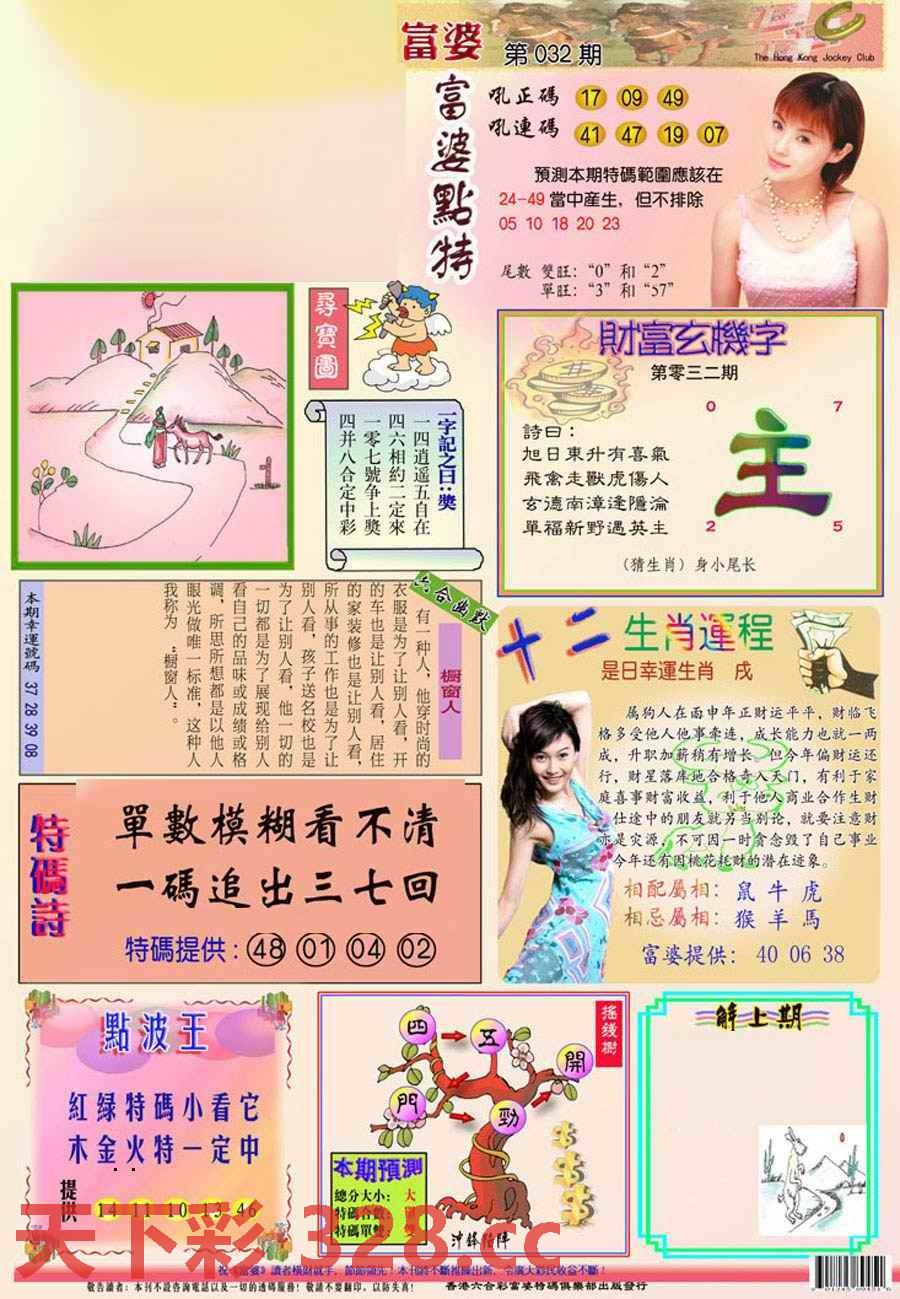 富婆
第 032 期
The Hong Kong Jockey Club
富婆點特
吼正碼 17 09 49
吼連碼 41 47 19 07
預測本期特碼範圍應該在
24-49 當中産生，但不排除
05 10 18 20 23
尾數 雙旺：“0”和“2”
單旺：“3”和“57”
尋寶圖
一字記之曰：獎
一四逍遥五自在
四六相約二定來
一零七號争上獎
四并八合定中彩
財富玄機字
第零三二期
詩曰：
旭日東升有喜氣
飛禽走獸虎傷人
玄德南漳逢隱淪
單福新野遇英主
0 7
主
2 5
（猜生肖）身小尾长
六合幽默
橱窗人
有一种人，他穿时尚的
衣服是为了让别人看，开
的车也是让别人看，居住
的家装修也是让别人看，
所从事的工作也是为了让
别人看，孩子送名校也是
为了让别人看，他一切的
一切都是为了展现给别人
看自己的品味或成绩或格
调，所思所想都是以他人
眼光做唯一标准，这种人
我称为“橱窗人”。
本期幸運號碼 37 28 39 08
十二生肖運程
是日幸運生肖 戌
属狗人在面申年正财运平平，财临飞
格多受他人他事牵连，成长能力也就一两
成，升职加薪稍有增长。但今年偏财运还
行，财星落库地合格奇入天门，有利于家
庭喜事财富收益，利于他人商业合作生财
仕途中的朋友就另当别论，就要注意财
亦是灾源，不可因一时贪念毁了自己事业
今年还有因桃花耗财的潜在迹象。
相配屬相：鼠 牛 虎
相忌屬相：猴 羊 馬
富婆提供： 40 06 38
特碼詩
單數模糊看不清
一碼追出三七回
特碼提供：48 01 04 02
點波王
紅緑特碼小看它
木金火特一定中
提供
14 11 10 13 46
搖錢樹
四 五 開
門 勁
本期預測
總分大小： 大
特碼合數： 單
特碼單雙： 雙
沖鋒陷陣
解上期
天下彩 328.cc
祝《富婆》讀者橫財就手，節節領先！本刊將不斷推陳出新，令廣大彩民收谷不斷！
敬告讀者：本刊不設咨詢電話以及一切的透碼服務！敬請不要翻印，以防失真！
香港六合彩富婆特碼俱樂部出版發行